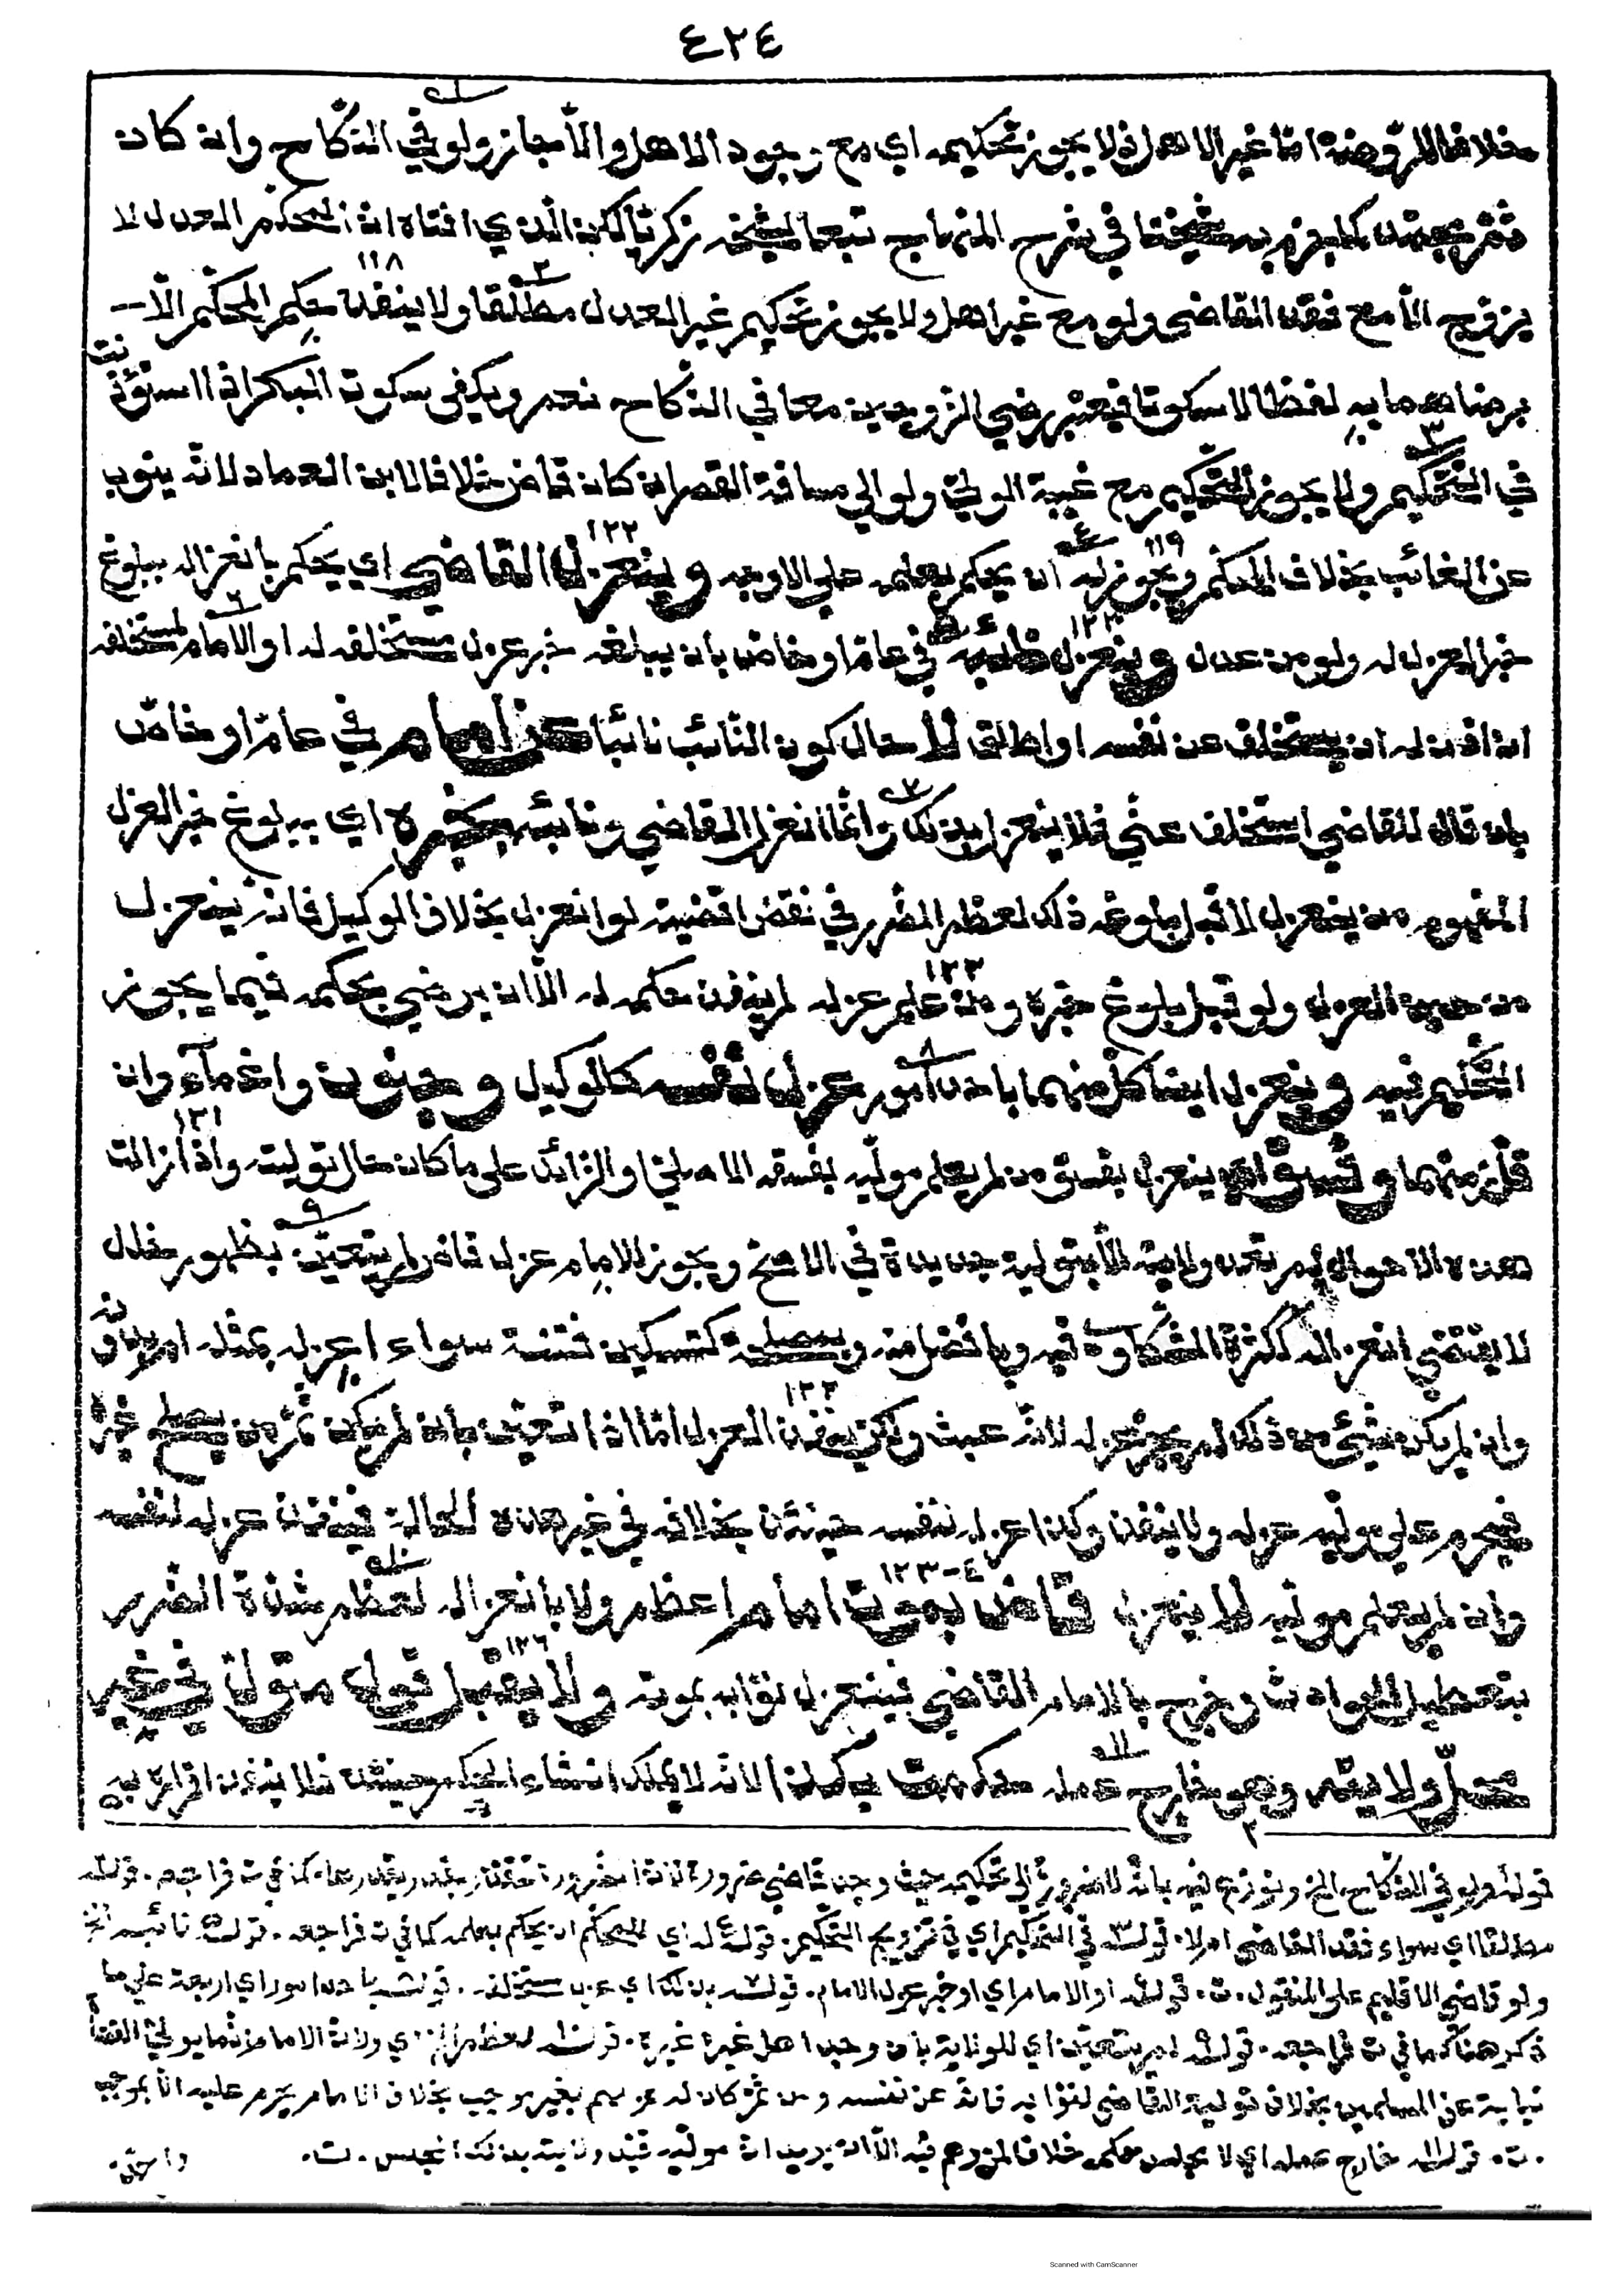 ٤٢٤
خلافا للروضة اما غير الاهل فلا يجوز تحكيمه اي مع وجود الاهل والّا جاز ولو في النكاح وان كان
ثمّ مجتهد كما جزم به شيخنا في شرح المنهاج تبعا لشيخه زكريّا لكن الّذي افتاه انّ المحكّم العدل لا
يزوّج الّا مع فقد القاضي ولو مع غير اهل ولا يجوز تحكيم غير العدل مطلقا ولا ينفذ حكم المحكّم الّا
برضاهما به لفظا لا سكوتا فيعتبر رضي الزوجين معا في النكاح نعم ويكفى سكوت البكر اذا استؤذنت
في التّحكيم ولا يجوز التّحكيم مع غيبة الوليّ ولو الي مسافة القصر ان كان قاض خلافا لابن العماد لانّه ينوب
عن الغائب بخلاف المحكّم ويجوز له ان يحكم بعلمه علي الاوجه وينعزل القاضي اي يحكم بانعزاله ببلوغ
خبر العزل له ولو من عدل وينعزل نائبه في عامّ او خاصّ بان يبلغه خبر عزل مستخلفه له او الامام لمستخلفه
ان اذن له ان يستخلف عن نفسه او اطلق لا حال كون النّائب نائبا عن امام في عامّ او خاصّ
بان قال للقاضي استخلف عنّي فلا ينعزل بذلك وانّما انعزل القاضي ونائبه بخبره اي ببلوغ خبر العزل
المفهوم من ينعزل لا قبل بلوغه ذلك لعظم الضّرر في نقض اقضيته لو انعزل بخلاف الوكيل فانّه ينعزل
من حين العزل ولو قبل بلوغ خبره ومن علم عزله لم ينفذ حكمه له الّا ان يرضي بحكمه فيما يجوز
التّحكيم فيه وينعزل ايضا كلّ منهما باحد امور عزل نفسه كالوكيل وجنون واغمآء وان
قلّ زمنهما وفسق اي ينعزل بفسق من لم يعلم مولّيه بفسقه الاصليّ او الزّائد على ما كان حال توليته واذا زالت
هذه الاحوال لم تعد ولايته الّا بتولية جديدة في الاصحّ ويجوز للامام عزل قاض لم يتعيّن بظهور خلل
لا يقتضي انعزاله ككثرة الشّكاوة فيه وبافضل منه وبمصلحة كتسكين فتنة سواء اعزله بمثله ام بدونه
وان لم يكن شيئ من ذلك لم يجز عزله لانّه عبث ولكن ينفذ العزل امّا اذا تعيّن بان لم يكن ثمّ من يصلح غيره
فيحرم علي مولّيه عزله ولا ينفذ وكذا عزله نفسه حينئذ بخلافه في غير هذه الحالة فينفذ عزله لنفسه
وان لم يعلم مولّيه لا ينعزل قاض بموت امام اعظم ولا بانعزاله لعظم شدّة الضّرر
بتعطيل الحوادث وخرج بالامام القاضي فينعزل نوّابه بموته ولا يقبل قول متولّ في غير
محلّ ولايته وهو خارج عمله حكمت بكذا لانّه لا يملك انشاء الحكم حينئذ فلا ينفذ اقراره به
قوله ولو في النّكاح الخ ونوزع فيه بانّه لا ضرورة الي تحكيمه حيث وجد قاضي ضرورة كما في ت فراجعه. قوله
مطلقا اي سواء فقد القاضي ام لا. قوله في التّحكيم اي في تزويج التّحكيم. قوله له اي للمحكّم ان يحكم بعلمه كما في ت فراجعه. قوله نائبه الخ
ولو قاضي الاقليم على المنقول. ت. قوله او الامام اي او خبر عزل الامام. قوله بذلك اي عزل مستخلفه. قوله باحد امور اي اربعة علي ما
ذكر هنا كما في ت فراجعه. قوله لم يتعيّن اي للولاية بان وجد اهل غيره. قوله لعظم اي ولانّ الامام انّما يولّي القضاة
نيابة عن المسلمين بخلاف تولية القاضي لنوّابه فانّه عن نفسه ومن ثمّ كان له عزلهم بغير موجب بخلاف الامام يحرم عليه الّا بموجب
. ت. قوله خارج عمله اي لا مجلس حكمه خلافا لمن وهم فيه الّا ان يريد انّ مولّيه قيّد ولايته بذلك المجلس. ت.